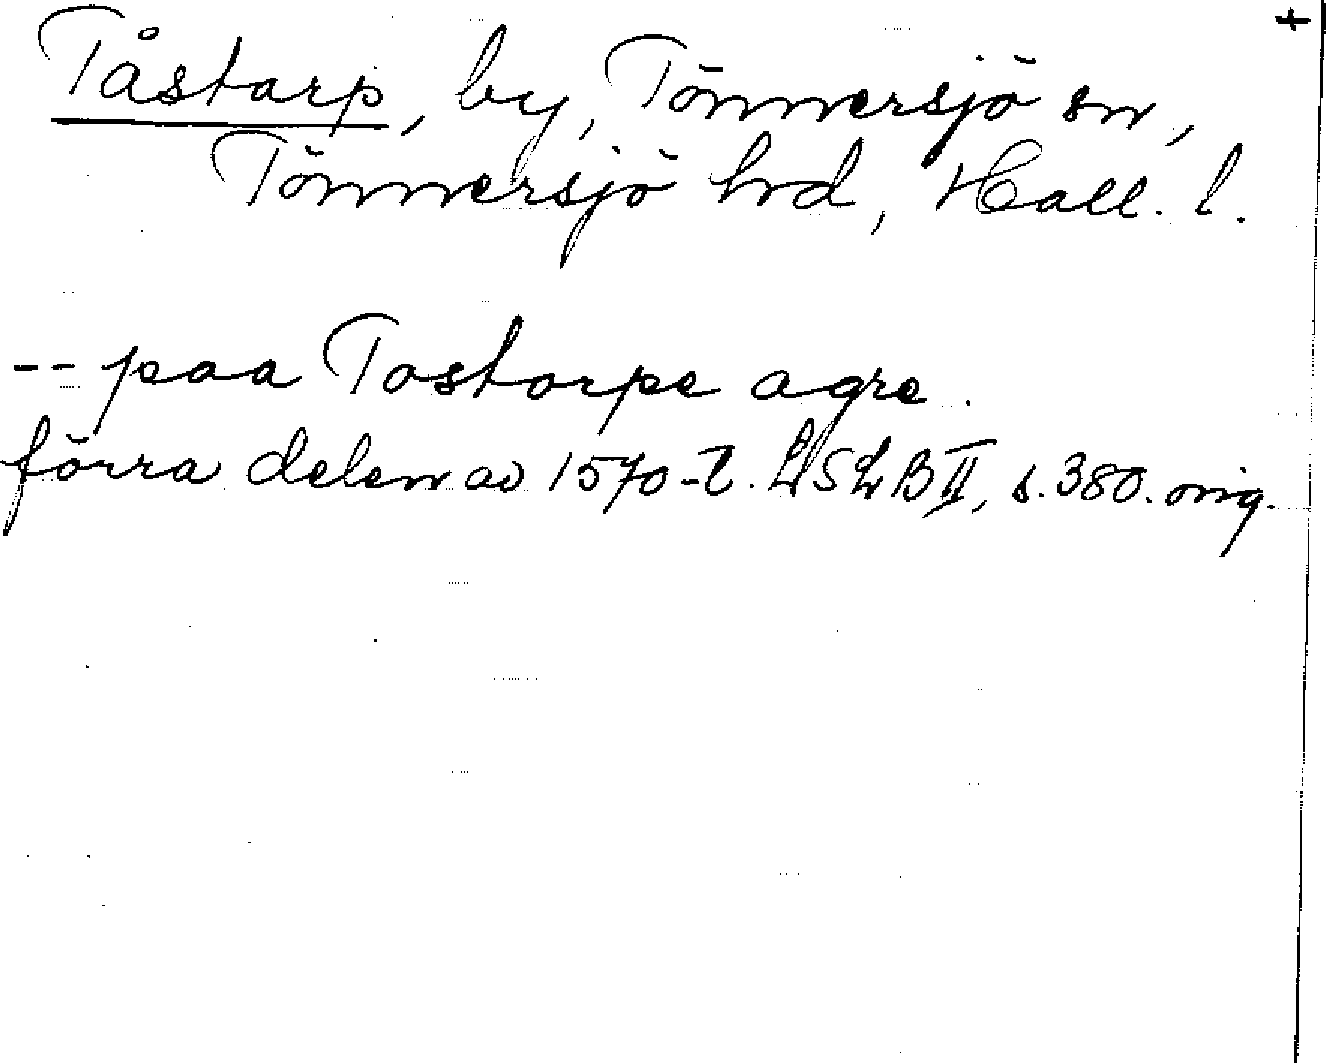 +
Tåstarp, by, Tönnersjö sn,
Tönnersjö hrd, Hall. l.
-- paa Tostorpe agre.
förra delen av 1570-t. LSLB II, s. 380. orig.